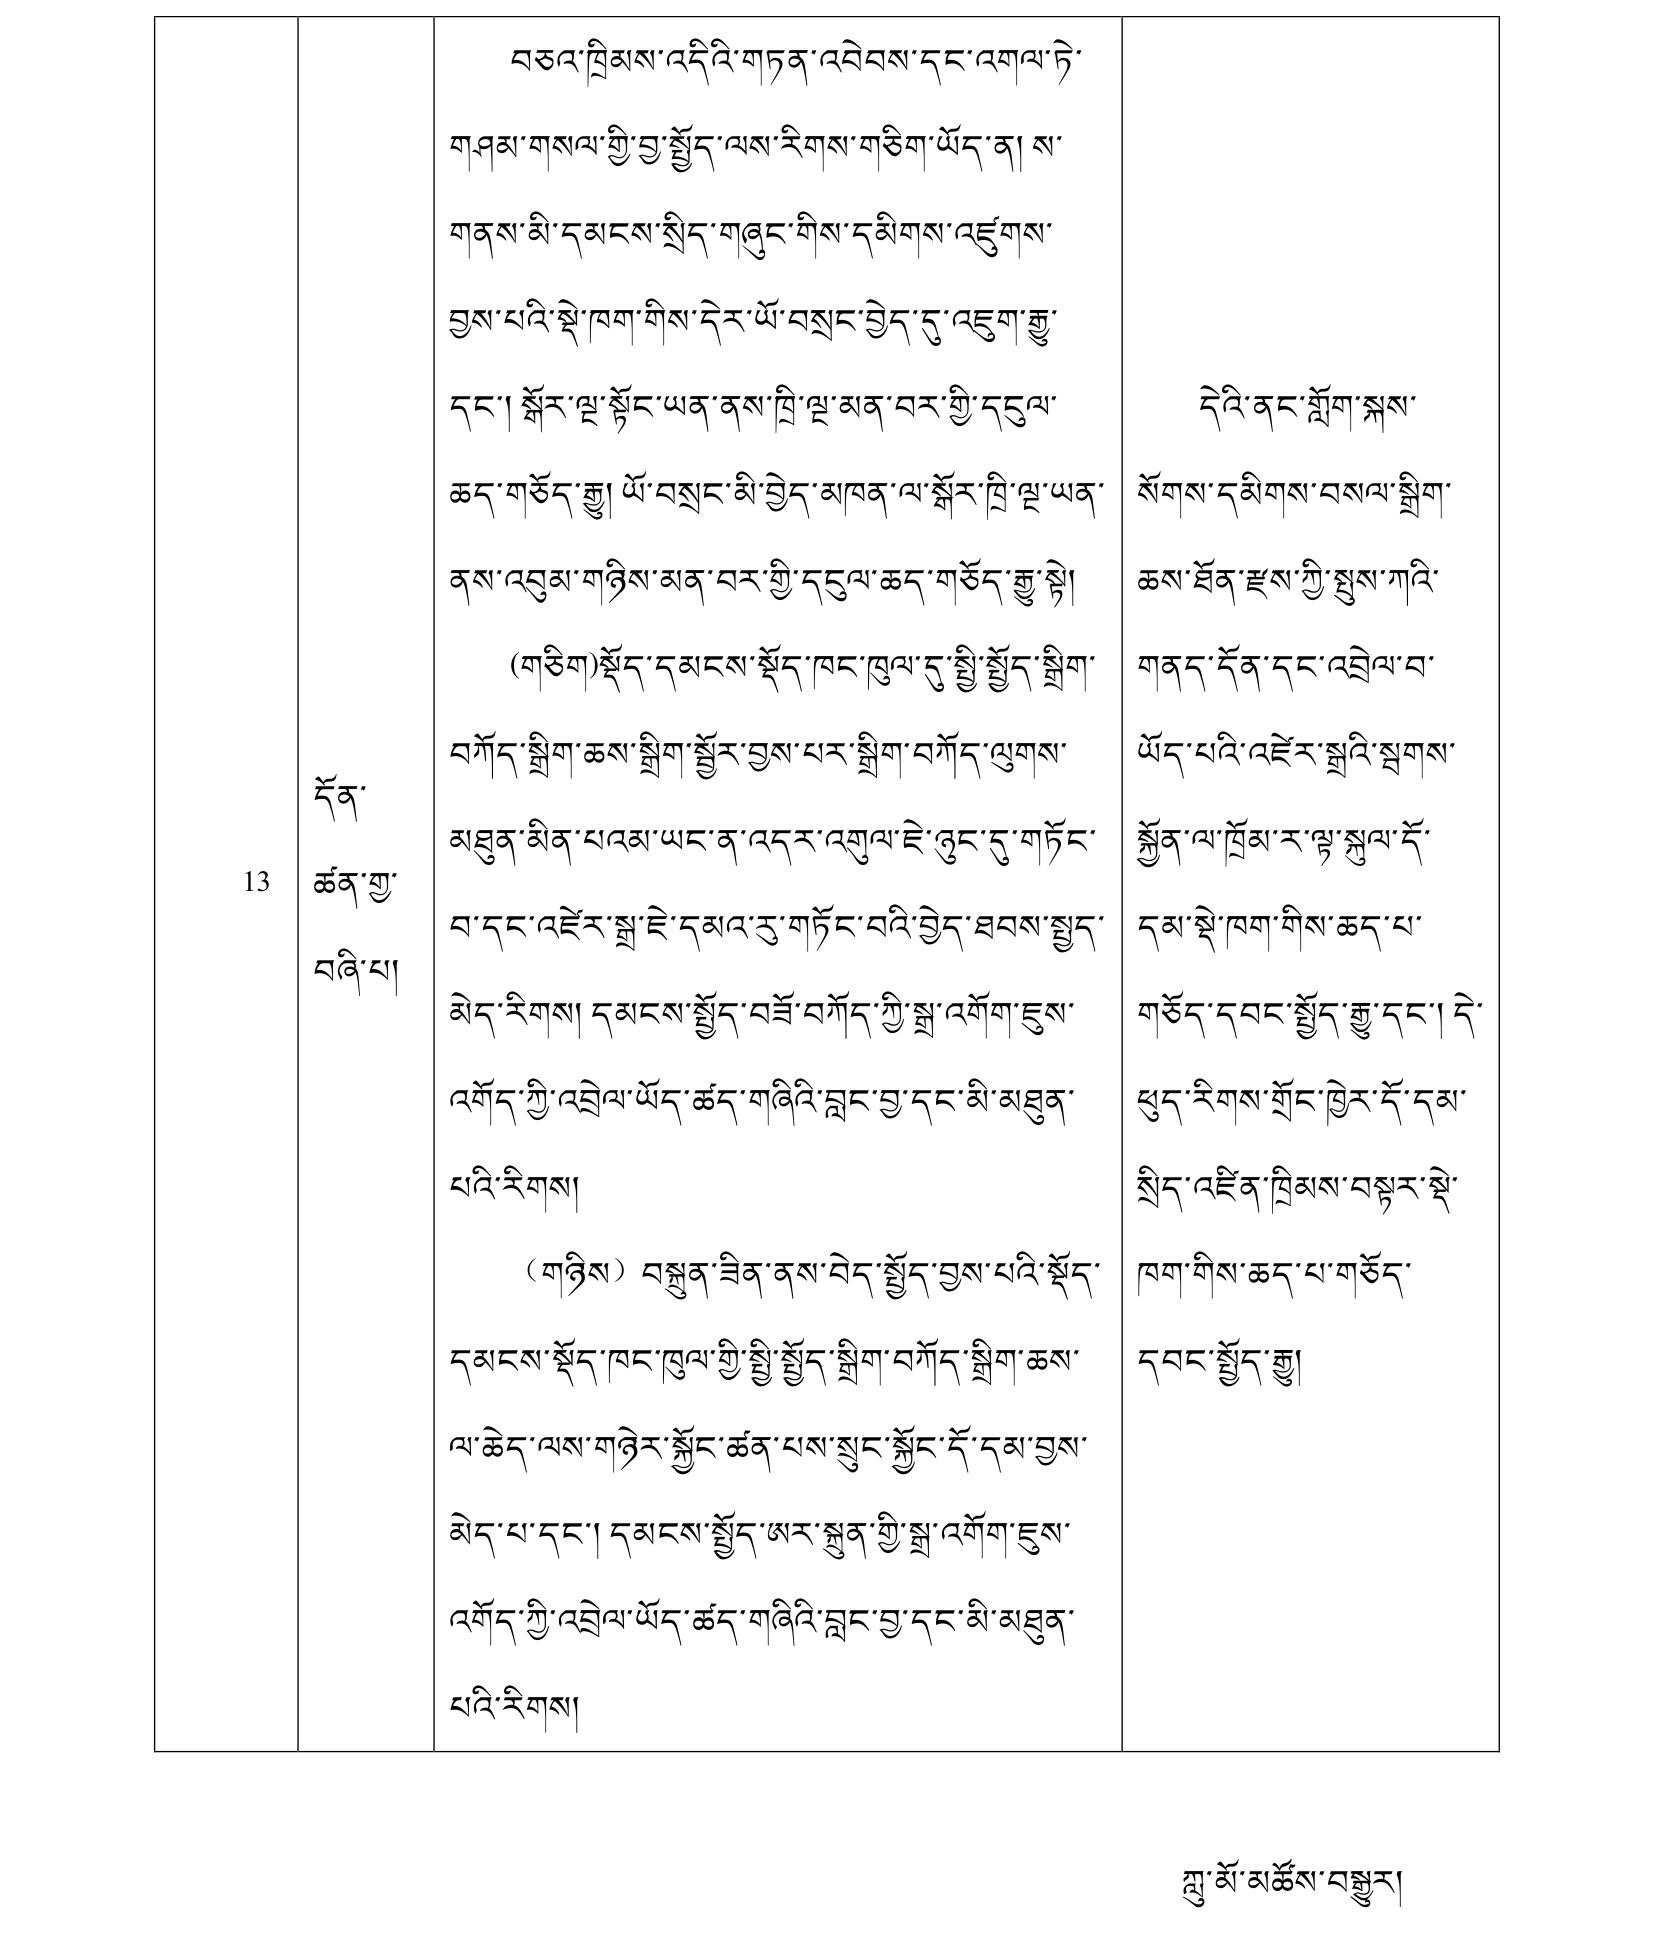 13
དོན་
ཚན་གྱ་
བཞི་པ།
བཅའ་ཁྲིམས་འདིའི་གཏན་འབེབས་དང་འགལ་ཏེ་
གཤམ་གསལ་གྱི་བྱ་སྤྱོད་ལས་རིགས་གཅིག་ཡོད་ན། ས་
གནས་མི་དམངས་སྲིད་གཞུང་གིས་དམིགས་འཛུགས་
བྱས་པའི་སྡེ་ཁག་གིས་དེར་ཡོ་བསྲང་བྱེད་དུ་འཇུག་རྒྱུ་
དང་། སྒོར་ལྔ་སྟོང་ཡན་ནས་ཁྲི་ལྔ་མན་བར་གྱི་དངུལ་
ཆད་གཅོད་རྒྱུ། ཡོ་བསྲང་མི་བྱེད་མཁན་ལ་སྒོར་ཁྲི་ལྔ་ཡན་
ནས་འབུམ་གཉིས་མན་བར་གྱི་དངུལ་ཆད་གཅོད་རྒྱུ་སྟེ།
(གཅིག)སྡོད་དམངས་སྡོད་ཁང་ཁུལ་དུ་སྤྱི་སྤྱོད་སྒྲིག་
བཀོད་སྒྲིག་ཆས་སྒྲིག་སྦྱོར་བྱས་པར་སྒྲིག་བཀོད་ལུགས་
མཐུན་མིན་པའམ་ཡང་ན་འདར་འགུལ་ཇེ་ཉུང་དུ་གཏོང་
བ་དང་འཛེར་སྒྲ་ཇེ་དམའ་རུ་གཏོང་བའི་བྱེད་ཐབས་སྤྱད་
མེད་རིགས། དམངས་སྤྱོད་བཟོ་བཀོད་ཀྱི་སྒྲ་འགོག་ཇུས་
འགོད་ཀྱི་འབྲེལ་ཡོད་ཚད་གཞིའི་བླང་བྱ་དང་མི་མཐུན་
པའི་རིགས།
（གཉིས）བསྐྲུན་ཟིན་ནས་བེད་སྤྱོད་བྱས་པའི་སྡོད་
དམངས་སྡོད་ཁང་ཁུལ་གྱི་སྤྱི་སྤྱོད་སྒྲིག་བཀོད་སྒྲིག་ཆས་
ལ་ཆེད་ལས་གཉེར་སྐྱོང་ཚན་པས་སྲུང་སྐྱོང་དོ་དམ་བྱས་
མེད་པ་དང་། དམངས་སྤྱོད་ཨར་སྐྲུན་གྱི་སྒྲ་འགོག་ཇུས་
འགོད་ཀྱི་འབྲེལ་ཡོད་ཚད་གཞིའི་བླང་བྱ་དང་མི་མཐུན་
པའི་རིགས།
དེའི་ནང་གློག་སྐས་
སོགས་དམིགས་བསལ་སྒྲིག་
ཆས་ཐོན་རྫས་ཀྱི་སྤུས་ཀའི་
གནད་དོན་དང་འབྲེལ་བ་
ཡོད་པའི་འཛེར་སྒྲའི་སྦགས་
སྐྱོན་ལ་ཁྲོམ་ར་ལྟ་སྐུལ་དོ་
དམ་སྡེ་ཁག་གིས་ཆད་པ་
གཅོད་དབང་སྤྱོད་རྒྱུ་དང་། དེ་
ཕུད་རིགས་གྲོང་ཁྱེར་དོ་དམ་
སྲིད་འཛིན་ཁྲིམས་བསྟར་སྡེ་
ཁག་གིས་ཆད་པ་གཅོད་
དབང་སྤྱོད་རྒྱུ།
ཀླུ་མོ་མཚོས་བསྒྱུར།